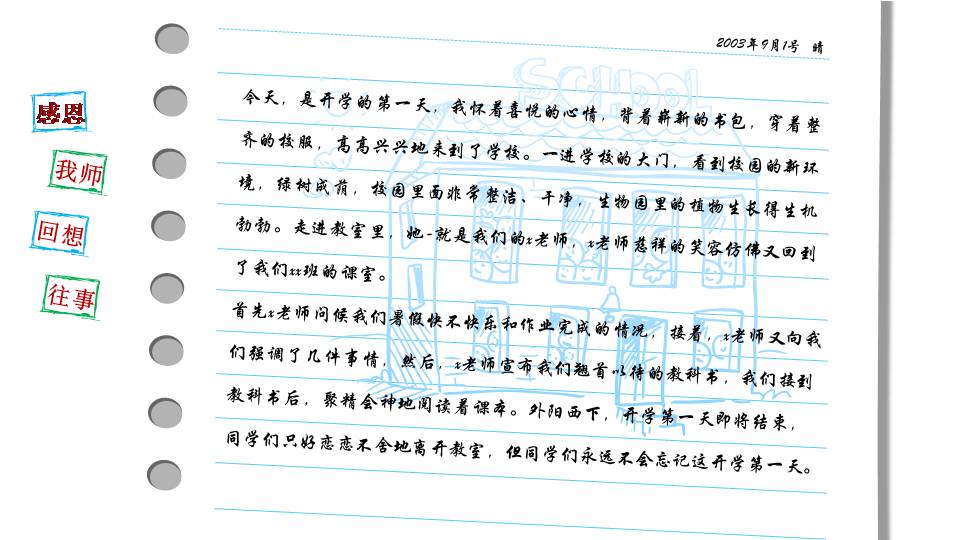 2003年9月1号 晴
SCHOOL
今天，是开学的第一天，我怀着喜悦的心情，背着崭新的书包，穿着整
齐的校服，高高兴兴地来到了学校。一进学校的大门，看到校园的新环
境，绿树成荫，校园里面非常整洁、干净，生物园里的植物生长得生机
勃勃。走进教室里，她-就是我们的x老师，x老师慈祥的笑容仿佛又回到
了我们xx班的课室。
首先x老师问候我们暑假快不快乐和作业完成的情况，接着，x老师又向我
们强调了几件事情，然后，x老师宣布我们翘首以待的教科书，我们接到
教科书后，聚精会神地阅读着课本。外阳西下，开学第一天即将结束，
同学们只好恋恋不舍地离开教室，但同学们永远不会忘记这开学第一天。
感恩
我师
回想
往事